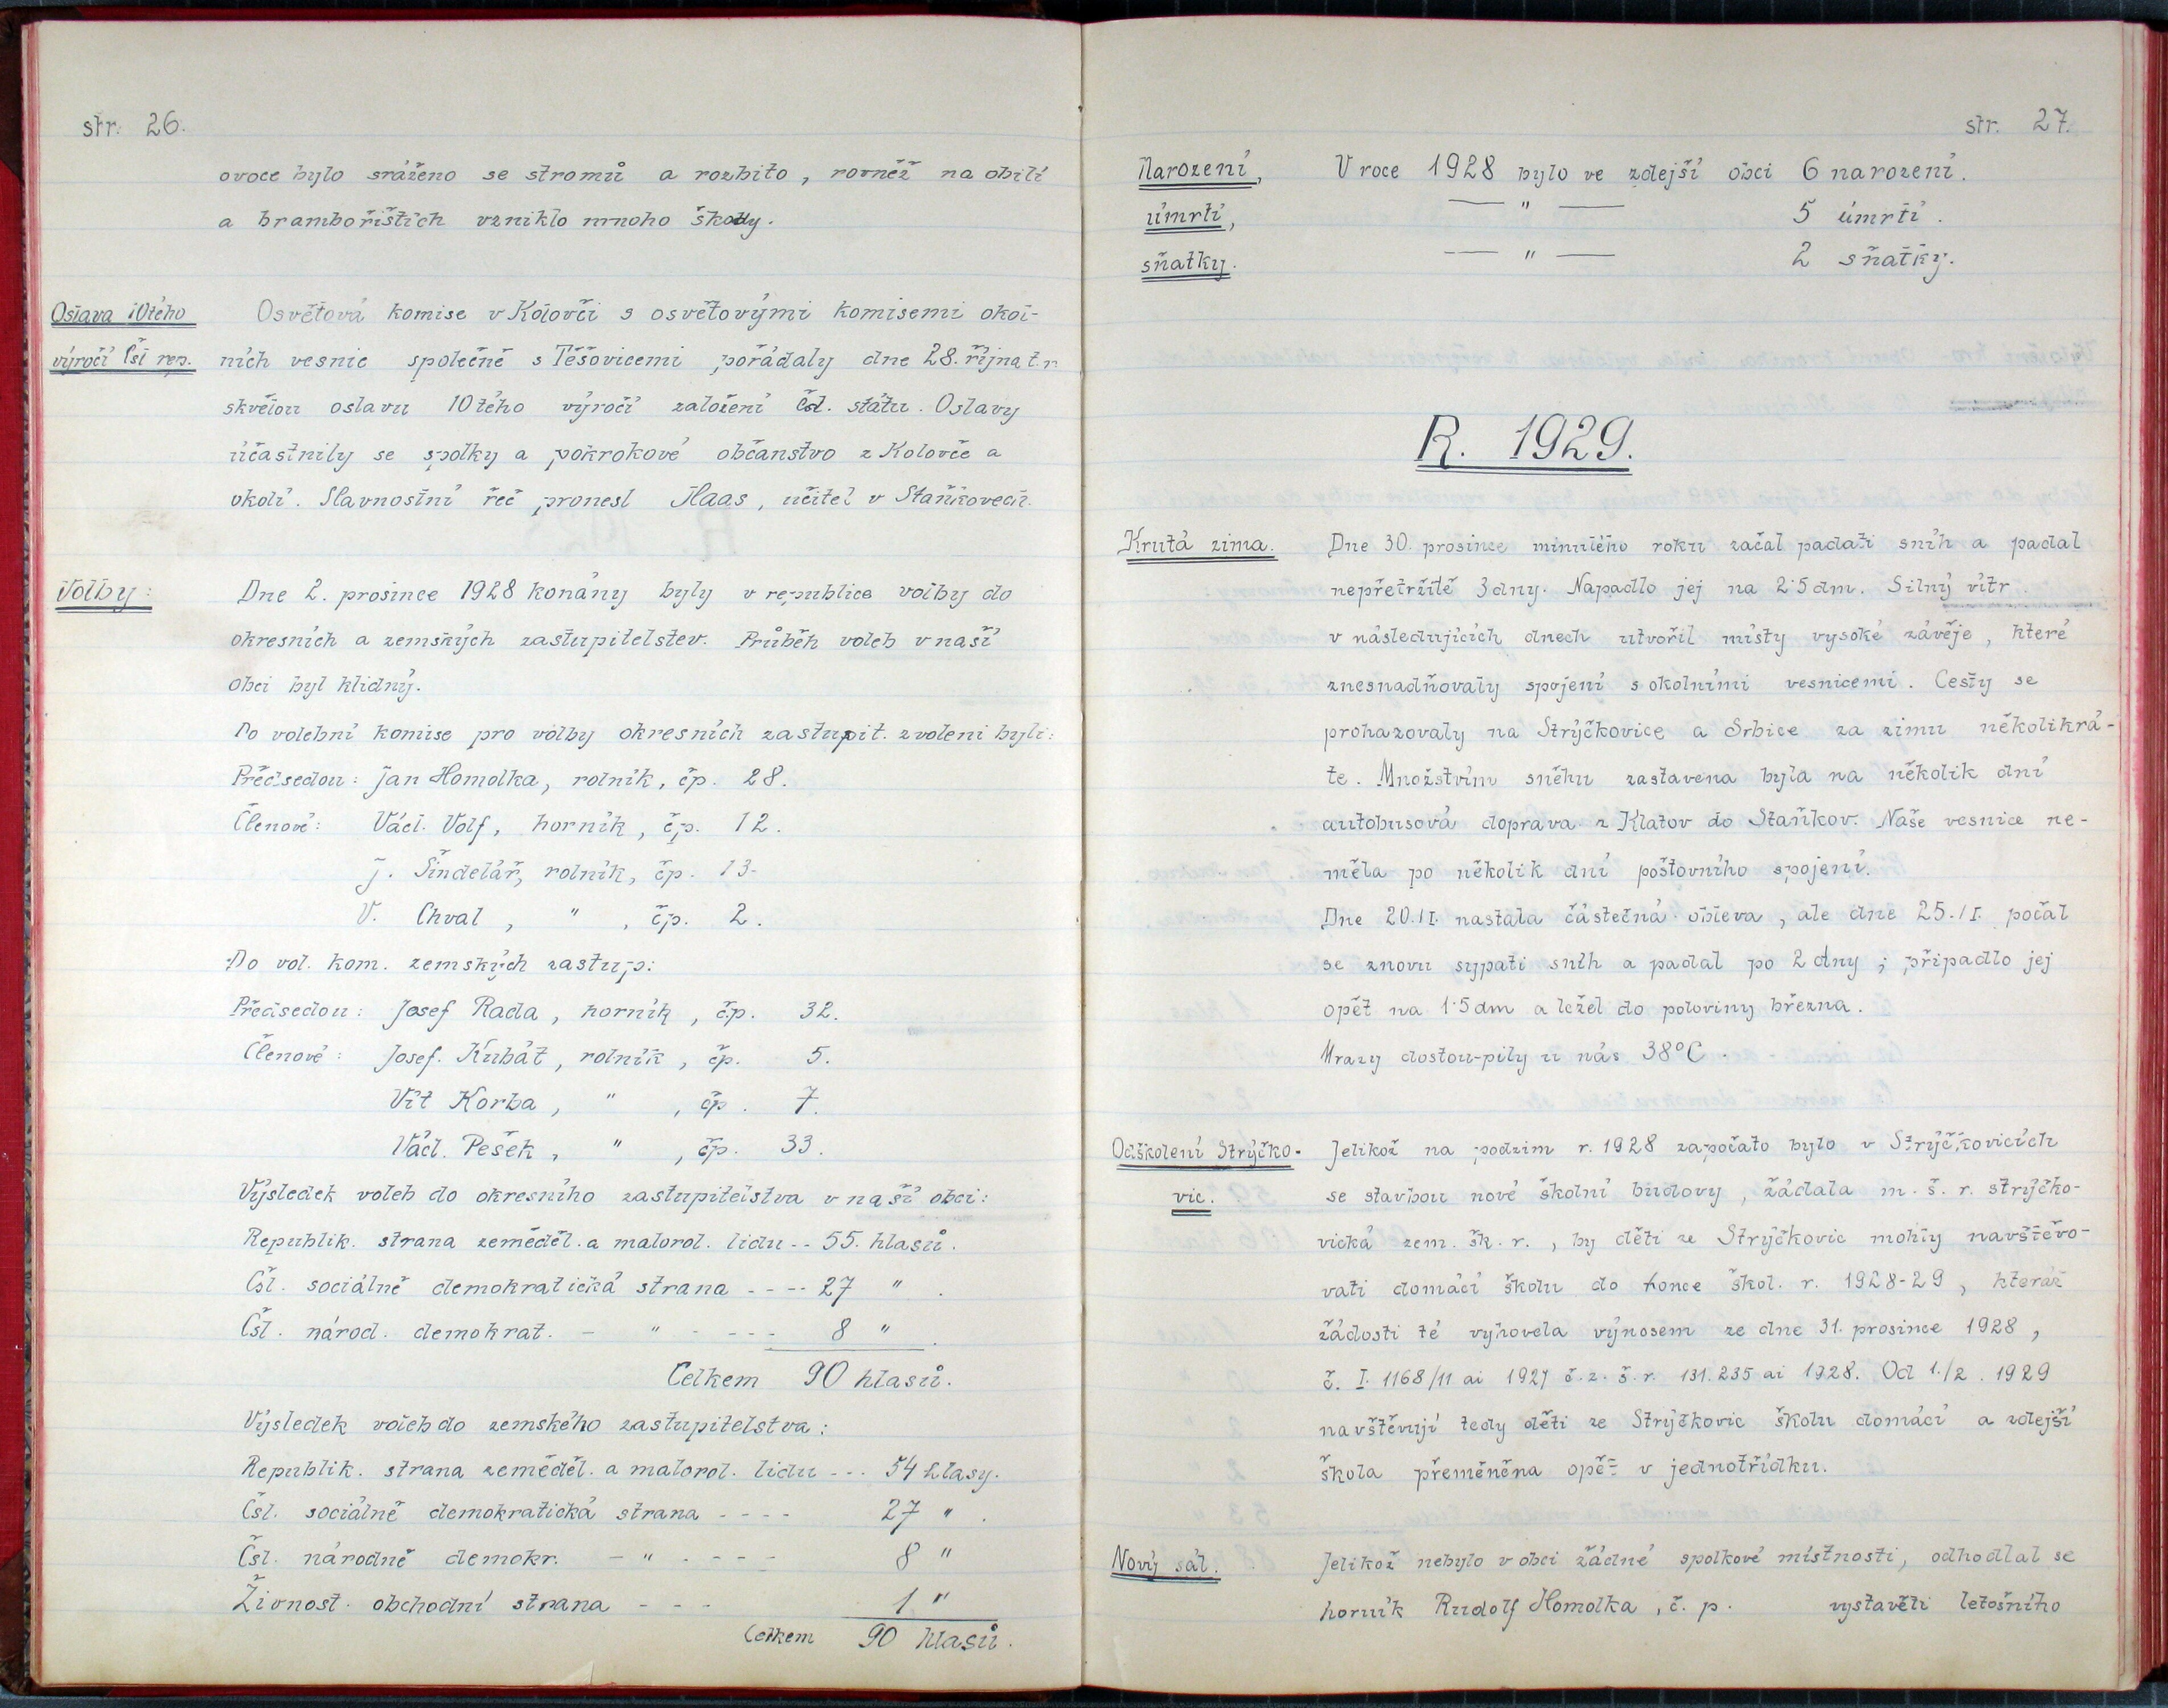 str. 26.
ovoce bylo sráženo se stromů a rozbito, rovněž na obilí
a brambořištích vzniklo mnoho škody.
Oslava 10tého
výročí Čsl rep.
Osvětová komise v Kolovči s osvětovými komisemi okol-
ních vesnic společně s Těšovicemi pořádaly dne 28. října t. r.
skvělou oslavu 10tého výročí založení čsl. státu. Oslavy
účastnily se spolky a pokrokové občanstvo z Kolovče a
okolí. Slavnostní řeč pronesl Haas, učitel v Staňkovech.
Volby:
Dne 2. prosince 1928 konány byly v republice volby do
okresních a zemských zastupitelstev. Průběh voleb v naší
obci byl klidný.
Do volební komise pro volby okresních zastupit. zvoleni byli:
Předsedou: Jan Homolka, rolník, čp. 28.
Členové: Václ. Volf, horník, čp. 12.
J. Šindelář, rolník, čp. 13.
V. Chval, " , čp. 2.
Do vol. kom. zemských zastup:
Předsedou: Josef Rada, horník, čp. 32.
Členové: Josef. Kubát, rolník, čp. 5.
Vít Korba, " , čp. 7.
Václ. Pešek, " , čp. 33.
Výsledek voleb do okresního zastupitelstva v naší obci:
Republik. strana zeměděl. a malorol. lidu -- 55. hlasů.
Čsl. sociálně demokratická strana ---- 27 " .
Čsl. národ. demokrat. - " - --- 8 " .
Celkem 90 hlasů.
Výsledek voleb do zemského zastupitelstva:
Republik. strana zeměděl. a malorol. lidu --- 54 hlasy.
Čsl. sociálně demokratická strana ---- 27 " .
Čsl. národně demokr. - " - --- 8 "
Živnost. obchodní strana --- 1 "
Celkem 90 hlasů.
str. 27.
Narození,
úmrtí,
sňatky.
V roce 1928 bylo ve zdejší obci 6 narození.
— " — 5 úmrtí.
— " — 2 sňatky.
R. 1929.
Krutá zima.
Dne 30. prosince minulého roku začal padati sníh a padal
nepřetržitě 3 dny. Napadlo jej na 2·5 dm. Silný vítr
v následujících dnech utvořil místy vysoké závěje, které
znesnadňovaly spojení s okolními vesnicemi. Cesty se
prohazovaly na Strýčkovice a Srbice za zimu několikrá-
te. Množstvím sněhu zastavena byla na několik dní
autobusová doprava z Klatov do Staňkov. Naše vesnice ne-
měla po několik dní poštovního spojení.
Dne 20./I. nastala částečná obleva, ale dne 25./I. počal
se znovu sypati sníh a padal po 2 dny; připadlo jej
opět na 1·5 dm a ležel do poloviny března.
Mrazy dostou-pily u nás 38°C.
Odškolení Strýčko-
vic.
Jelikož na podzim r. 1928 započato bylo v Strýčkovicích
se stavbou nové školní budovy, žádala m. š. r. strýčko-
vická zem. šk. r., by děti ze Strýčkovic mohly navštěvo-
vati domácí školu do konce škol. r. 1928-29, kteráž
žádosti té vyhovela výnosem ze dne 31. prosince 1928,
č. I. 1168/11 ai 1927 č. z. š. r. 131.235 ai 1928. Od 1./2. 1929
navštěvují tedy děti ze Strýčkovic školu domácí a zdejší
škola přeměněna opět v jednotřídku.
Nový sál.
Jelikož nebylo v obci žádné spolkové místnosti, odhodlal se
horník Rudolf Homolka, č. p. vystavěti letošního